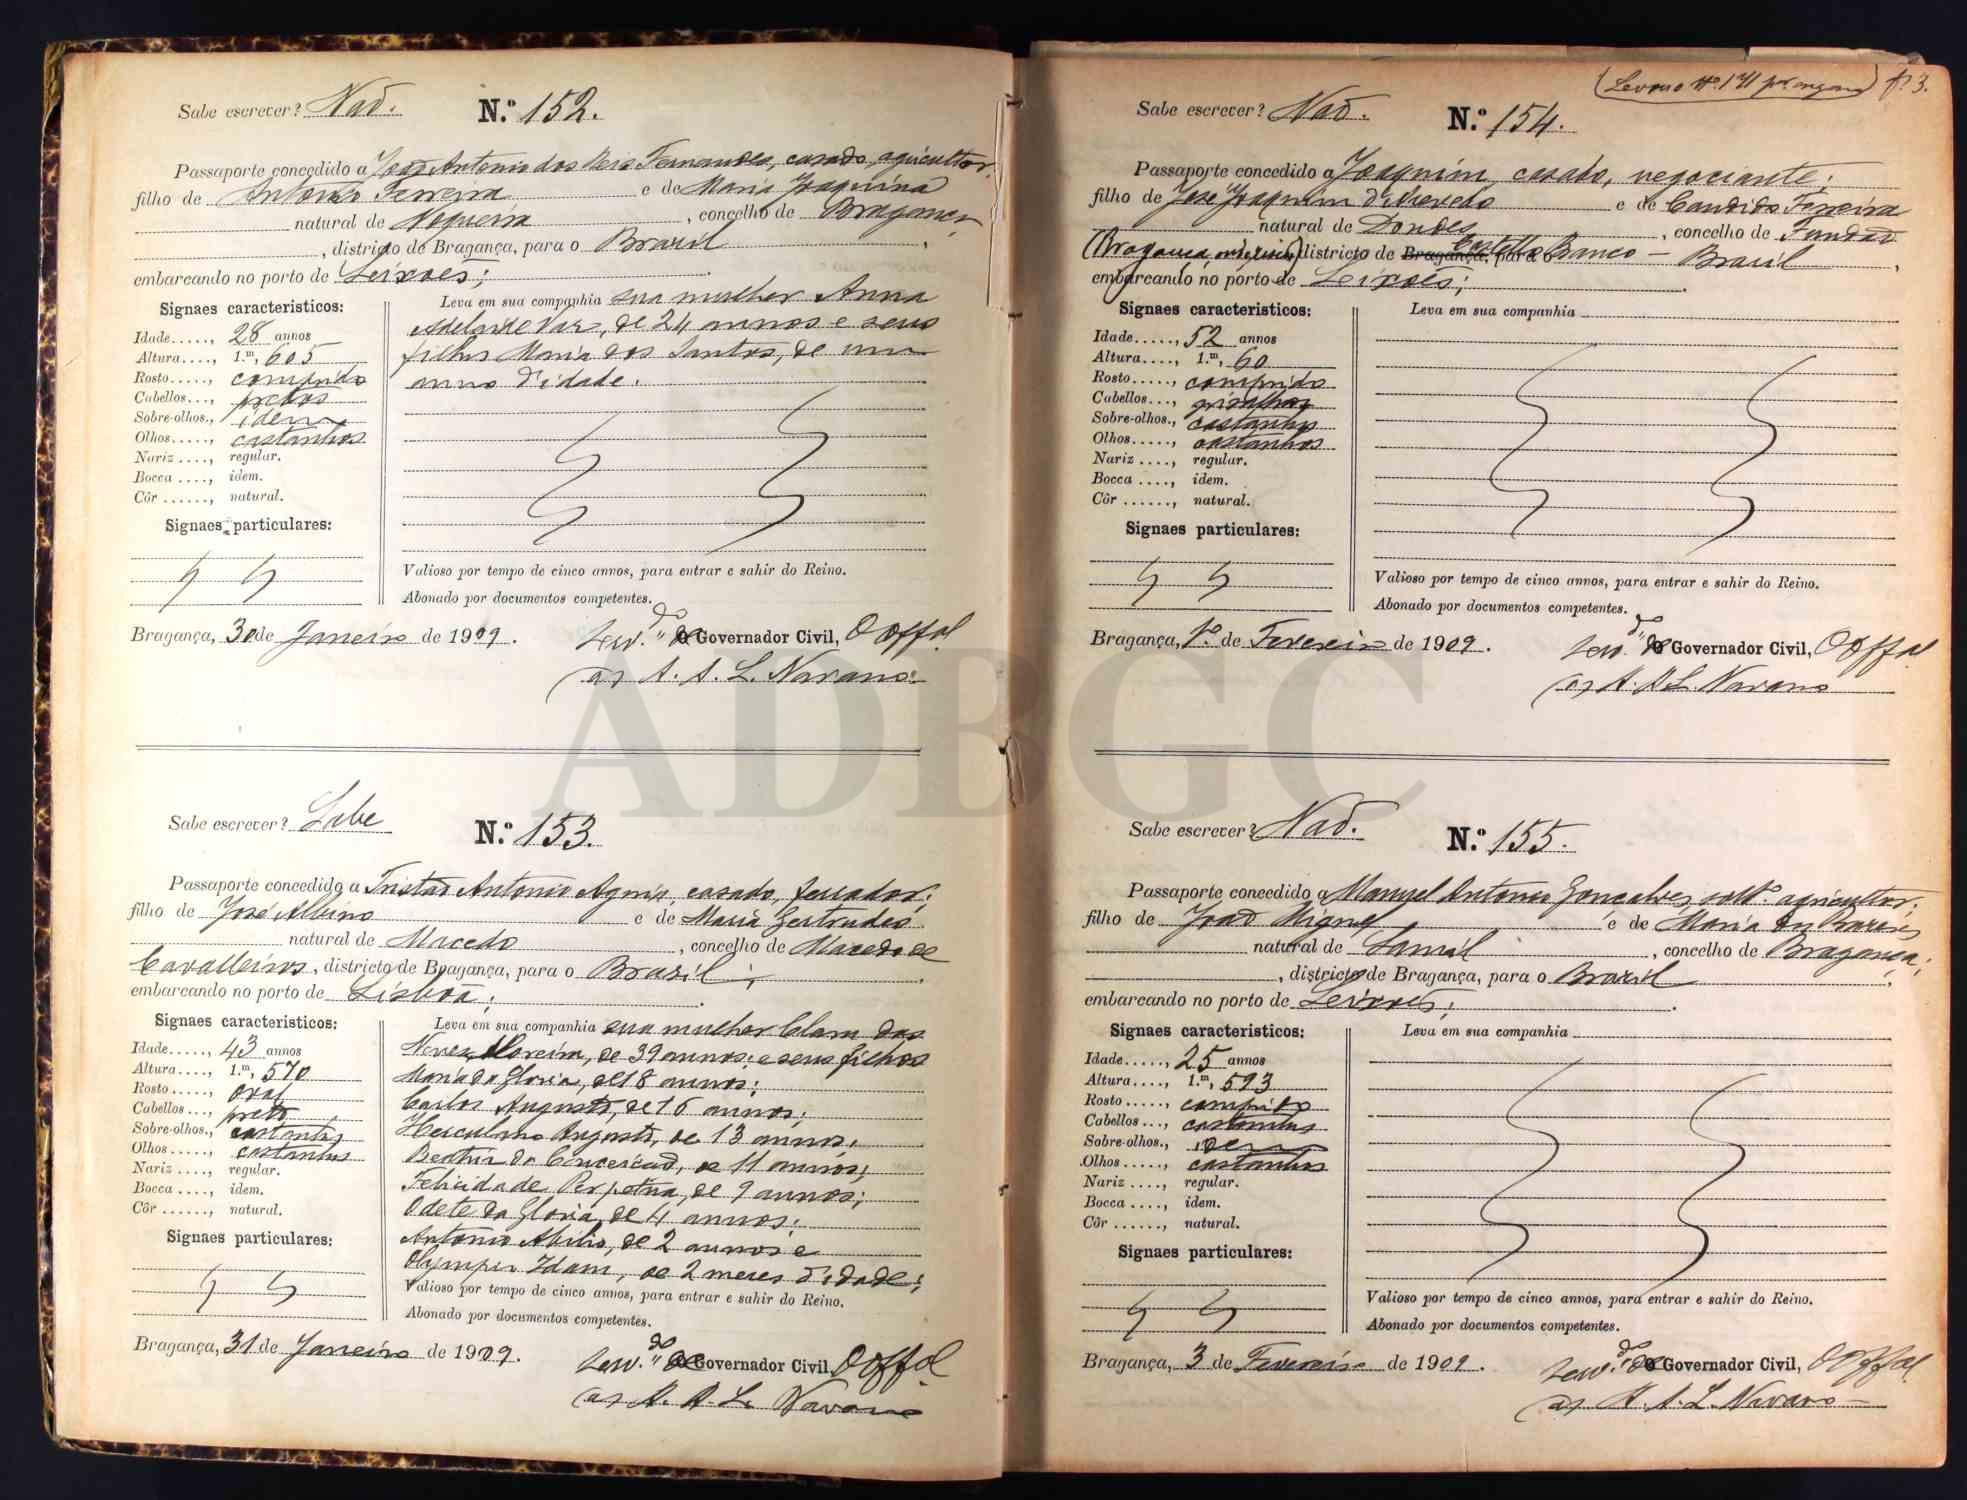 Sabe escrever? Não.
N.º 152.
Passaporte concedido a João Antonio dos Reis Fernandes, casado, agricultor,
filho de Antonio Ferreira e de Maria Joaquina
natural de Nogueira, concelho de Bragança,
, districto de Bragança, para o Brazil,
embarcando no porto de Leixoes;
Signaes caracteristicos:
Idade....., 28 annos
Altura...., 1.m, 605
Rosto....., comprido
Cabellos..., pretos
Sobre-olhos., idem
Olhos....., castanhos
Nariz ...., regular.
Bocca ...., idem.
Côr ......, natural.
Signaes particulares:
Leva em sua companhia sua mulher Anna
Adelaide Vaz, de 24 annos e seus
filhos Maria dos Santos, de um
anno d'idade.
Valioso por tempo de cinco annos, para entrar e sahir do Reino.
Abonado por documentos competentes.
Bragança, 30 de Janeiro de 1909.
do
Governador Civil, O Offal
A. A. L. Navarro
Sabe escrever? Sabe
N.º 153.
Passaporte concedido a Tristão Antonio Agnis, casado, ferrador;
filho de José Albino e de Maria Gertrudes
natural de Macedo, concelho de Macedo de
Cavalleiros, districto de Bragança, para o Brazil;
embarcando no porto de Lisboa;
Signaes caracteristicos:
Idade....., 43 annos
Altura...., 1.m, 570
Rosto....., oval
Cabellos..., preto
Sobre-olhos., castanhos
Olhos....., castanhos
Nariz ...., regular.
Bocca ...., idem.
Côr ......, natural.
Signaes particulares:
Leva em sua companhia sua mulher Clara das
Neves Moreira, de 39 annos; e seus filhos
Maria da Gloria, de 18 annos;
Carlos Augusto, de 16 annos;
Herculano Augusto, de 13 annos;
Beatriz da Conceicão, de 11 annos;
Felicidade Perpetua, de 9 annos;
Odete da Gloria, de 4 annos;
Antonio Abilio, de 2 annos e
de 2 meses d'idade;
Valioso por tempo de cinco annos, para entrar e sahir do Reino.
Abonado por documentos competentes.
Bragança, 31 de Janeiro de 1909.
do
Governador Civil, O Offal
A. A. L. Navarro
(Levou Nº 141 por engano) fl 3.
Sabe escrever? Não.
N.º 154.
Passaporte concedido a Joaquim, casado, negociante;
filho de José Joaquim d'Azevedo e de Candida Ferreira
natural de Donas, concelho de Fundão
districto de Bragança, para o Castello Branco – Brazil,
embarcando no porto de Leixoes;
Signaes caracteristicos:
Idade....., 52 annos
Altura...., 1.m, 60
Rosto....., comprido
Cabellos..., grisalhos
Sobre-olhos., castanhos
Olhos....., castanhos
Nariz ...., regular.
Bocca ...., idem.
Côr ......, natural.
Signaes particulares:
Leva em sua companhia
Valioso por tempo de cinco annos, para entrar e sahir do Reino.
Abonado por documentos competentes.
Bragança, 1º de Fevereiro de 1909.
do
Governador Civil, O Offal
A. A. L. Navarro
Sabe escrever? Não.
N.º 155.
Passaporte concedido a Manuel Antonio Gonçalves, soltº, agricultor;
filho de João Miguel e de Maria dos Prazeres
natural de Samil, concelho de Bragança;
, districto de Bragança, para o Brazil
embarcando no porto de Leixoes;
Signaes caracteristicos:
Idade....., 25 annos
Altura...., 1.m, 593
Rosto....., comprido
Cabellos..., castanhos
Sobre-olhos., idem
Olhos....., castanhos
Nariz ...., regular.
Bocca ...., idem.
Côr ......, natural.
Signaes particulares:
Leva em sua companhia
Valioso por tempo de cinco annos, para entrar e sahir do Reino.
Abonado por documentos competentes.
Bragança, 3 de Fevereiro de 1909.
do
Governador Civil, O Offal
A. A. L. Navarro
ADBGC